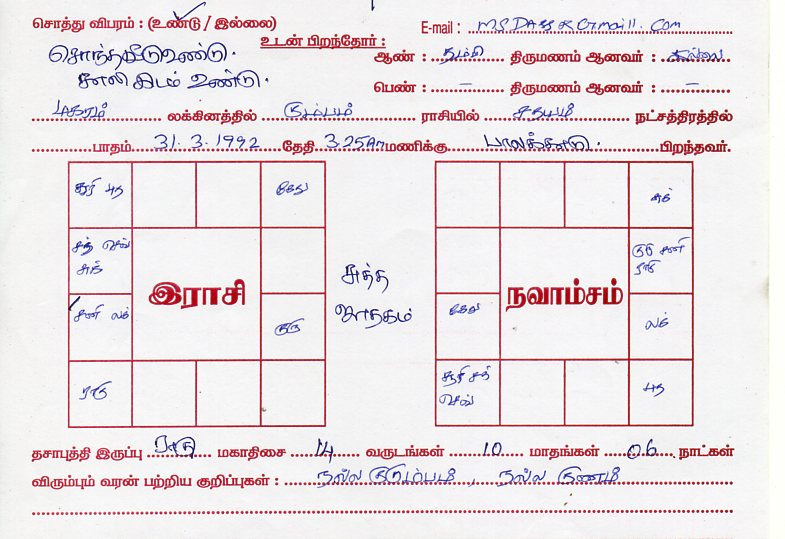 சொத்து விபரம் : (உண்டு / இல்லை) E-mail :
சொந்தவீடு உண்டு.
உடன் பிறந்தோர் :
ஆண் : தம்பி திருமணம் ஆனவர் : இல்லை
காலி இடம் உண்டு.
பெண் : – திருமணம் ஆனவர் : –
மகரம் லக்கினத்தில் கும்பம் ராசியில் சதயம் நட்சத்திரத்தில்
பாதம் 31.3.1992 தேதி 3.25Am மணிக்கு பாலக்காடு. பிறந்தவர்.
சூரி புத கேது
சுக்
சந் செவ்
சுக்
குரு சனி
ராகு
இராசி
சுத்த
ஜாதகம்
நவாம்சம்
சனி லக் குரு
கேது லக்
ராகு
சூரி சந்
செவ்
புத
தசாபுத்தி இருப்பு ராகு மகாதிசை 14 வருடங்கள் 10 மாதங்கள் 06 நாட்கள்
விரும்பும் வரன் பற்றிய குறிப்புகள் : நல்ல குடும்பம், நல்ல குணம்